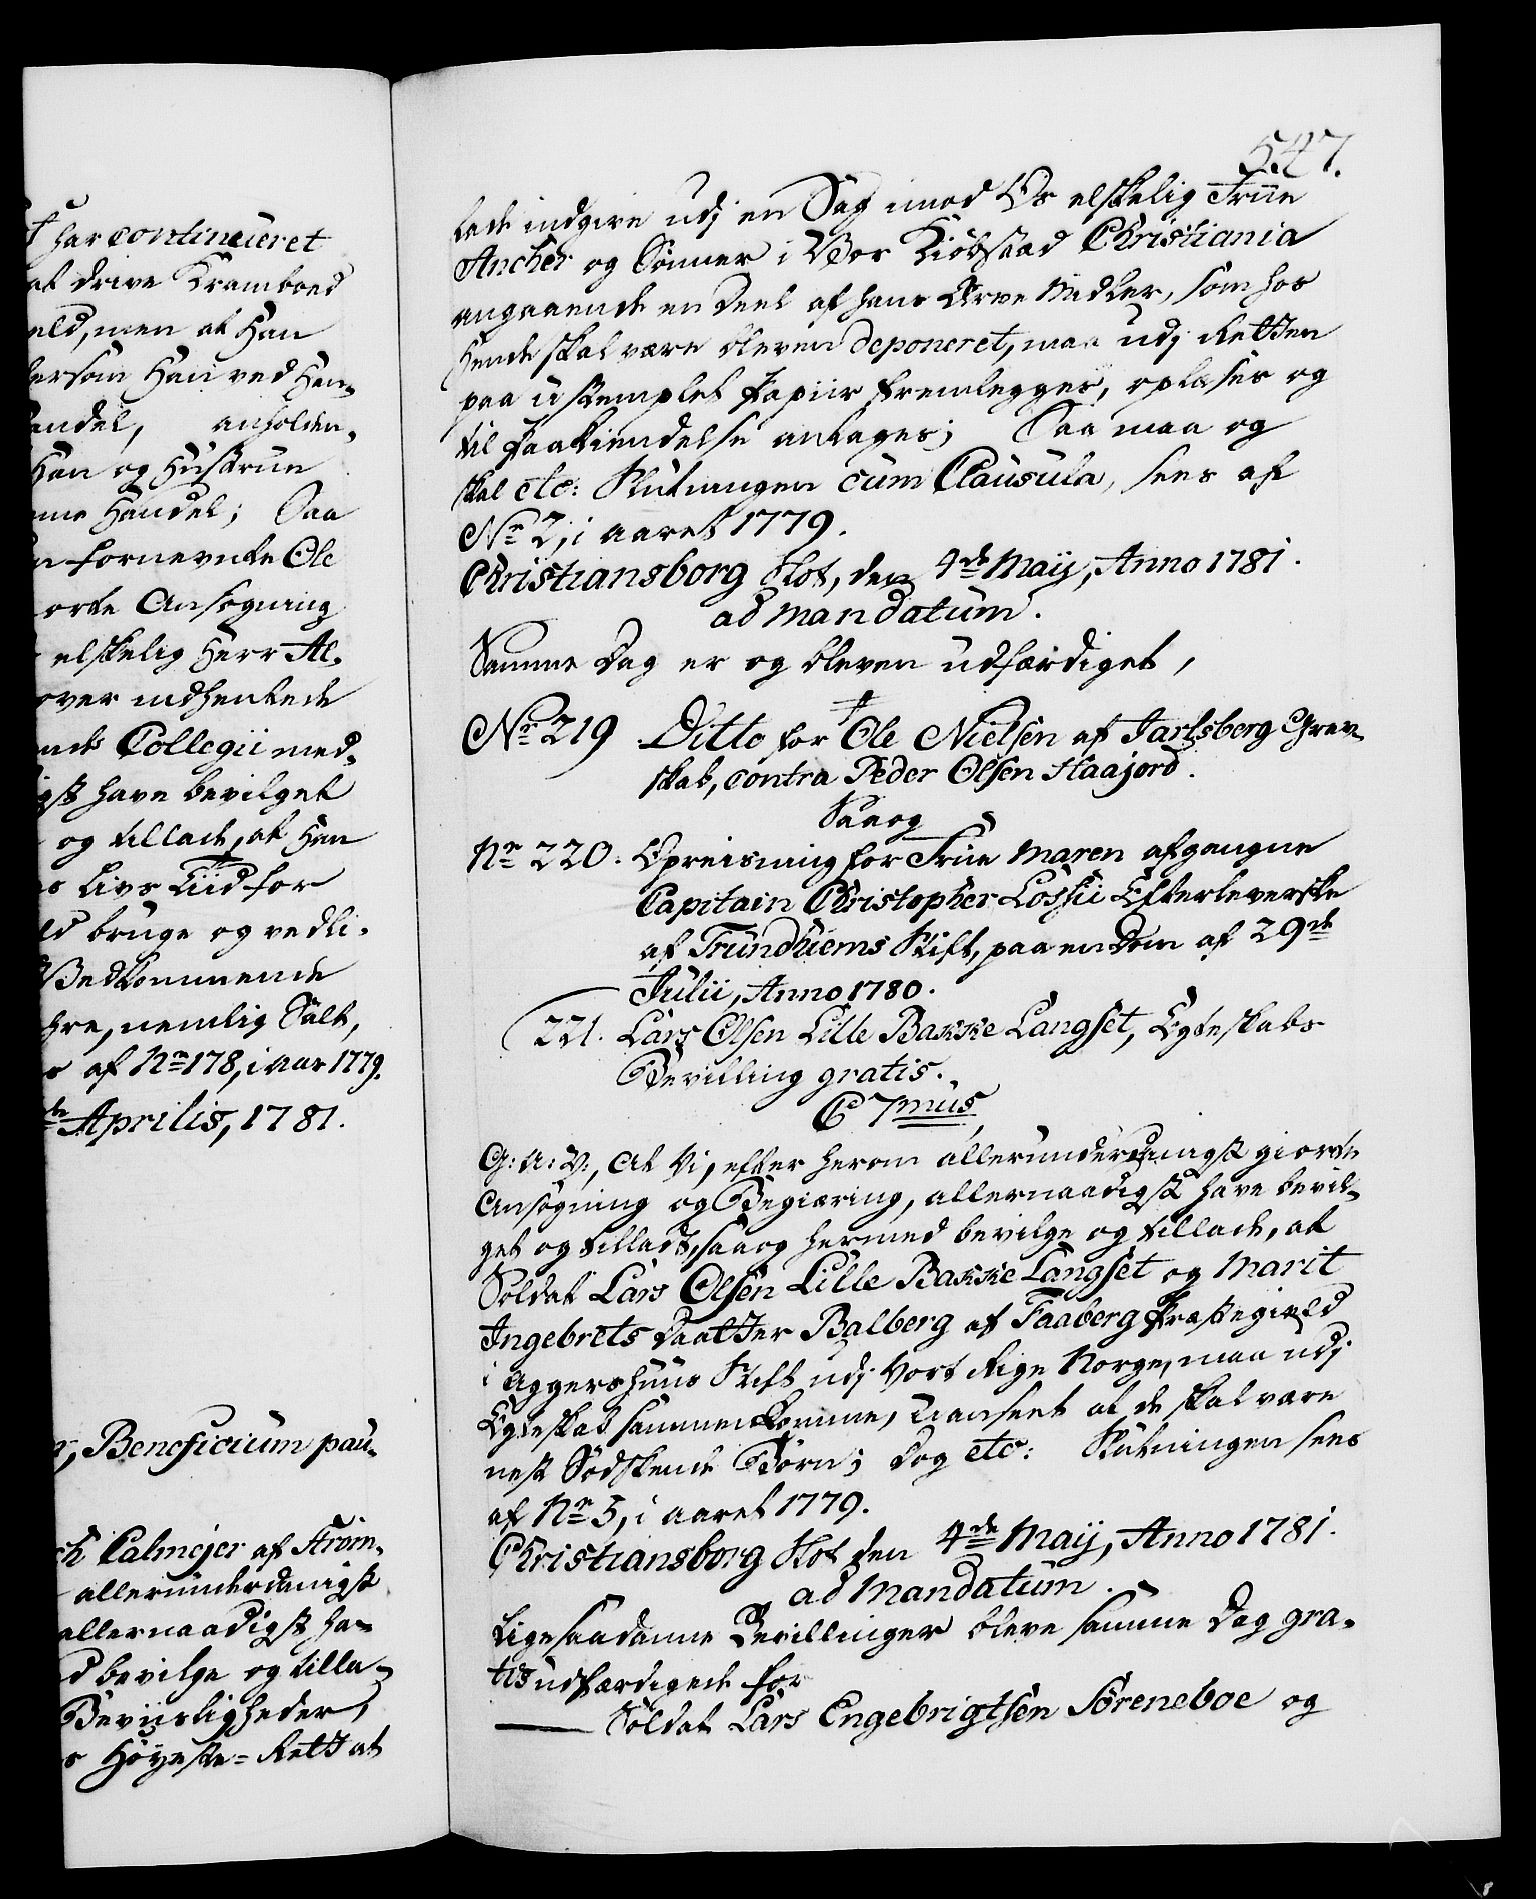 t har contineüeret
at drive Kramboed
eld, men at Han
dersom Han ved Han-
andel, anholden-
Han og Hustrue
mme Handel; Saa
n fornevnte Ole
orte Ansögning
elskelig Herr At-
over indhentede
nde Collegii med-
igst have bevilget
og tillade, at Han
s Livs Tiid for
ld bruge og vedli-
Vedkommende
hre, nemlig Salt,
s af No 178, i aar 1779.
de Aprilis, 1781.
g, Beneficium pau-
ch Calmejer af Ström-
allerunderdanigst
allernaadigst ha-
d bevilge og tilla-
Beviisligheder,
s Höyeste-Rett at
547.
lade indgive udj en Sag imod Os elskelig Früe
Ancher og Sönner i Vor Kiöbstad Christiania
angaaende en Deel af hans Arve Midler, som hos
hende skal være bleven deponeret, maa udj Retten
paa ustemplet Papiir fremlegges, oplæses og
til Paakiendelse antages; Saa maa og
skal etc: Slutningen cum Clausula, sees af
No 2, i aaret 1779.
Christiansborg Slot, den 4de Maij, Anno 1781.
ad mandatum.
Samme Dag er og bleven udfærdiget,
No 219. Ditto for Ole Nielsen af Jarlsberg Grev-
skab, contra Peder Olsen Haajord.
Saa og
No 220. Opreisning for Frue Maren afgangne
Capitain Christopher Lossii Efterleverske
af Trundhiems Stift, paa en Dom af 29de
Julii, Anno 1780.
221. Lars Olsen Lille Bakke Langset, Egteskabs
Bevilling gratis.
C 7mus
G: A: V:, at Vi, efter herom allerunderdanigst giorte
Ansögning og Begiæring, allernaadigst have bevil-
get og tilladt, saa og hermed bevilge og tillade, at
Soldat Lars Olsen Lille Bakke Langset og Marit
Ingebrets Daatter Balberg af Faaberg Præstegield
i Aggershuus Stift udj Vort Rige Norge, maa udj
Egteskab sammenkomme, uanseet at de skal være
nest Södskende Börn; Dog etc: Slutningen sees
af No 5, i aaret 1779.
Christiansborg Slot den 4de Maij, Anno 1781.
ad Mandatum.
Ligesaadanne Bevillinger bleve samme Dag gra-
tis udfærdigede for
Soldat Lars Engebrigtsen Söreneboe og